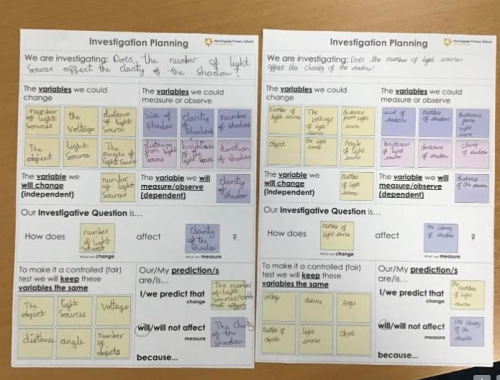 Investigation Planning
We are investigating: Does the number of light
source affect the clarity of the shadow?
The variables we could
change
The variables we could
measure or observe
number of light source
the Voltage
distance of light source
Size of Shadow
clarity of shadow
number of shadow
The object
light Source
The angle of light source
distance from light source
brightness of light source
direction of shadow
The variable we
will change
(independent)
number of light source
The variable we will
measure/observe
(dependent)
clarity of shadow
Our Investigative Question is...
How does
number of light source
What we change
affect
clarity of the shadow
What we measure
?
To make it a controlled (fair)
test we will keep these
variables the same
The object
light Source
Voltage
distance
angle
number of objects
Our/My prediction/s
are/is...
I/we predict that
change
The number of light source
will/will not affect
measure
The clarity of the shadow
because...
Investigation Planning
We are investigating: Does the number of light source
affect the clarity of the shadow?
The variables we could
change
The variables we could
measure or observe
Number of light source
The voltage of light source
distance from light source
size of shadow
number of shadow
distance from light source
object
The light source
Angle of light source
brightness of light source
direction of shadow
clarity of shadow
The variable we
will change
(independent)
number of light source
The variable we will
measure/observe
(dependent)
Our Investigative Question is...
How does
number of light source
What we change
affect
the clarity of shadow
What we measure
?
To make it a controlled (fair)
test we will keep these
variables the same
voltage
distance
Angle
number of object
light source
object
Our/My prediction/s
are/is...
I/we predict that
change
the number of light source
will/will not affect
measure
the clarity of the shadow
because...